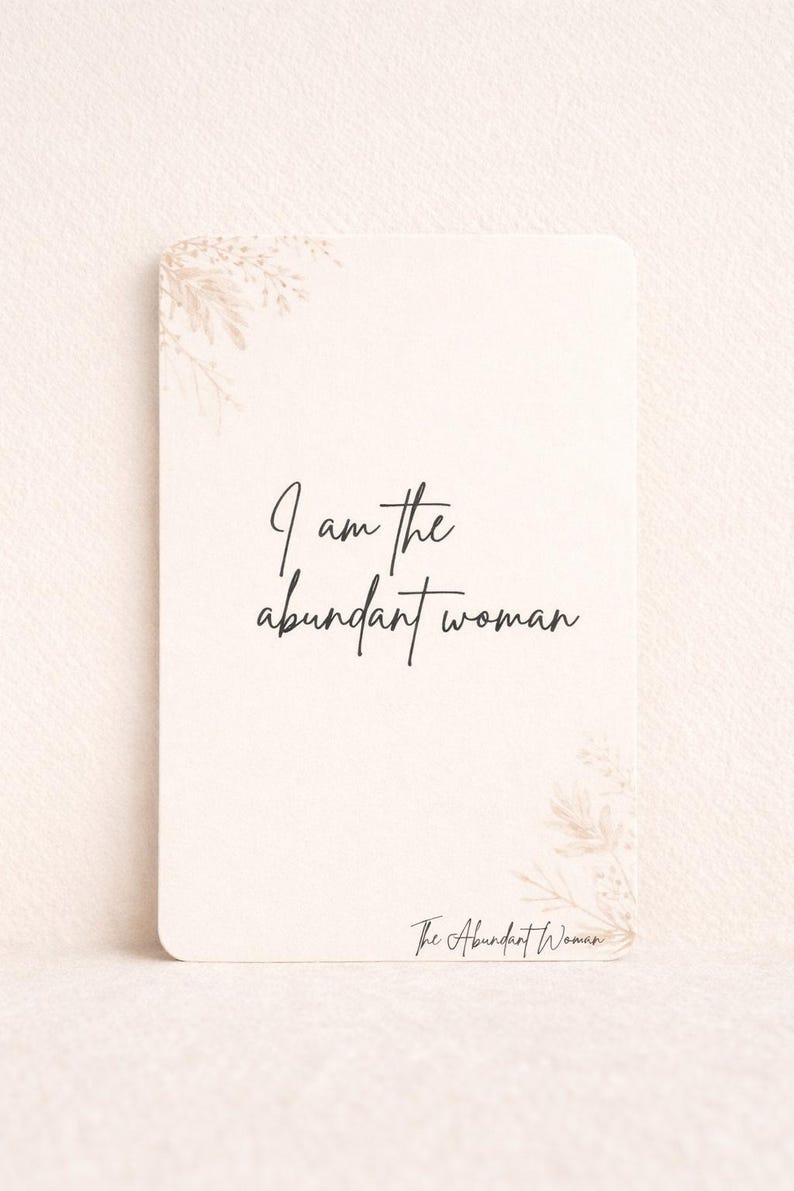 I am the
abundant woman
The Abundant Woman